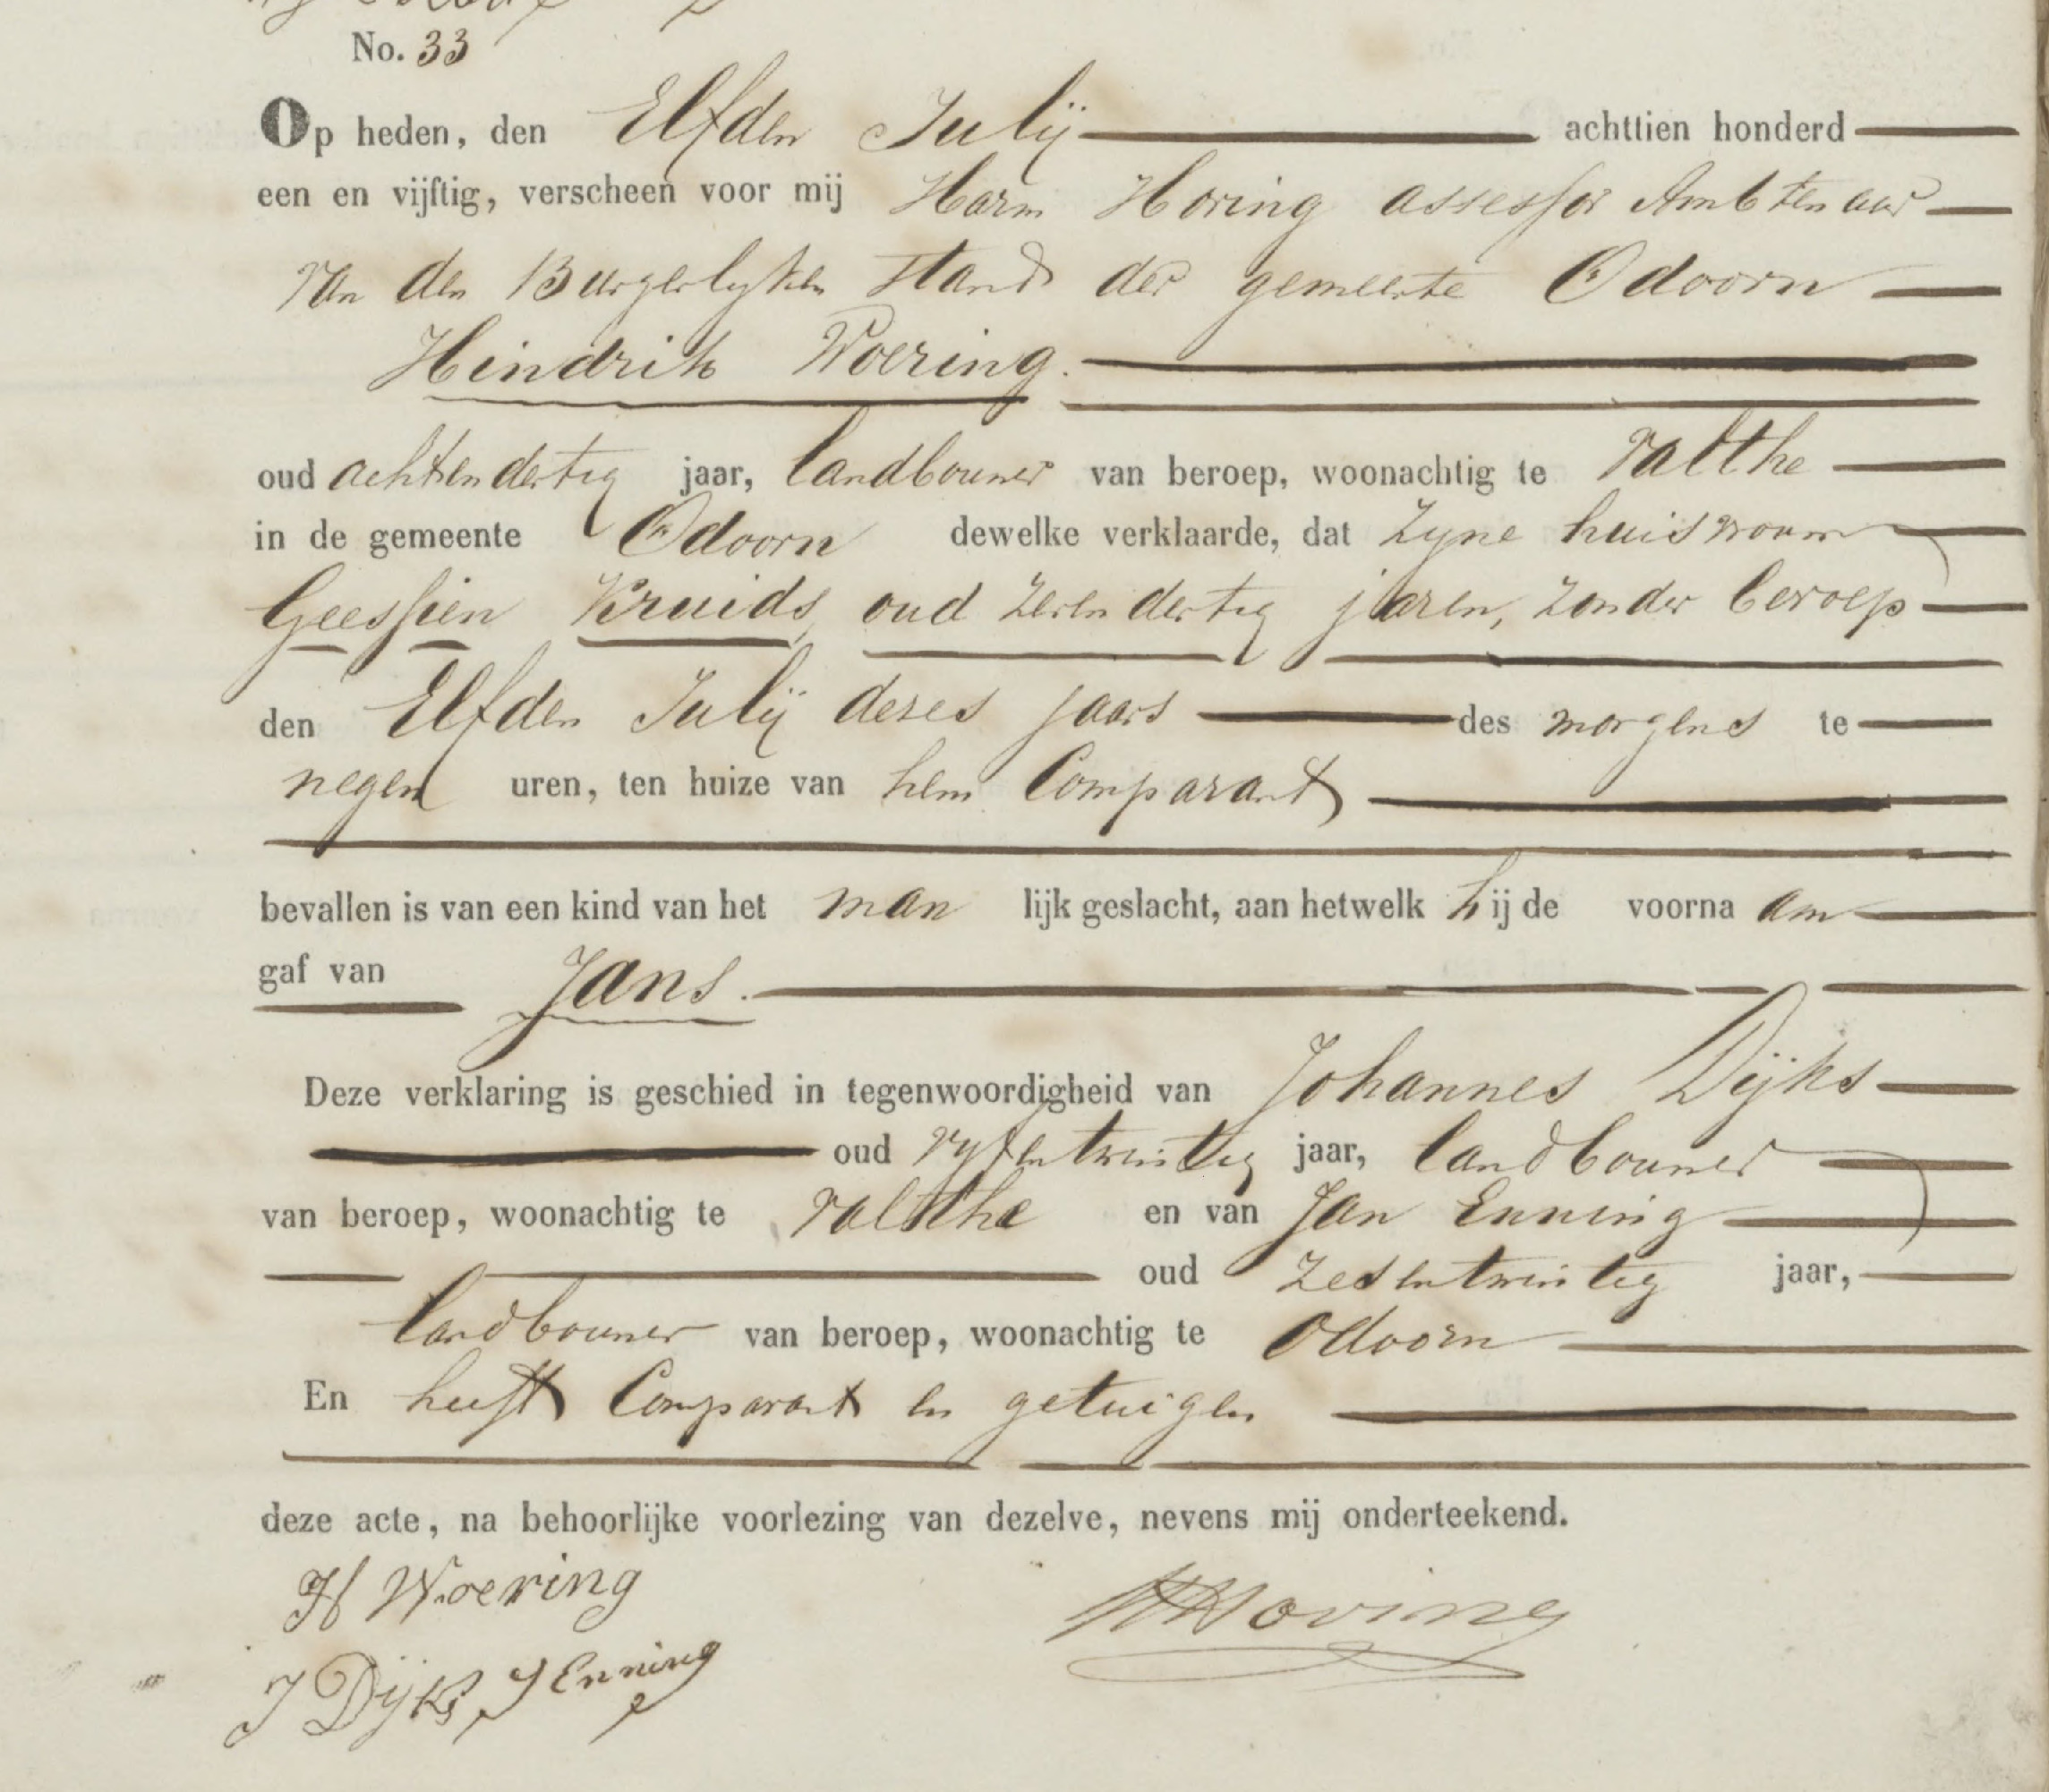 No. 33
Op heden, den Elfden Julij achttien honderd
een en vijftig, verscheen voor mij Harm Hoving assessor Ambtenaar
van den Burgerlyken stand der gemeente Odoorn
Hindrik Woering.
oud achtendertig jaar, landbouwer van beroep, woonachtig te Valthe
in de gemeente Odoorn dewelke verklaarde, dat Zyne huisvrouw
Geessien Kruids, oud zevendertig jaren, zonder beroep
den Elfden Julij dezes jaars des morgens te
negen uren, ten huize van hem Comparant
bevallen is van een kind van het man lijk geslacht, aan hetwelk h ij de voorna am
gaf van Jans.
Deze verklaring is geschied in tegenwoordigheid van Johannes Dijks
oud vyfentwintig jaar, landbouwer
van beroep, woonachtig te Valthe en van Jan Enning
oud zesentwintig jaar,
landbouwer van beroep, woonachtig te Odoorn
En heeft Comparant en getuigen
deze acte, na behoorlijke voorlezing van dezelve, nevens mij onderteekend.
H Woering HHoving
J Dijks J Enning